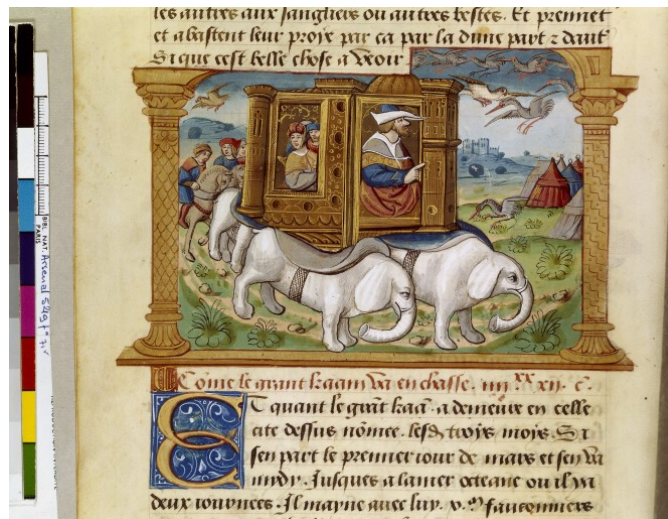 les autres aux sangliers ou autres bestes. Et prennet
et abastent leur proie par ca par la dune part z dautˀ
Si que cest belle chose a veoir.
Cōme le grant kaam va en chasse. iiij xx xij. c.
Et quant le grāt kaā a demeure en celle
cite dessus nōmee. lesdˀ troys moys. Si
sen part le premier iour de mars et sen va
mydy. Jusques a la mer occeane ou il ya
deux iournees. Il mayne avec luy .v. m fauconniers
BIBL. NAT.
PARIS
Arsenal 5219 fº 71 r